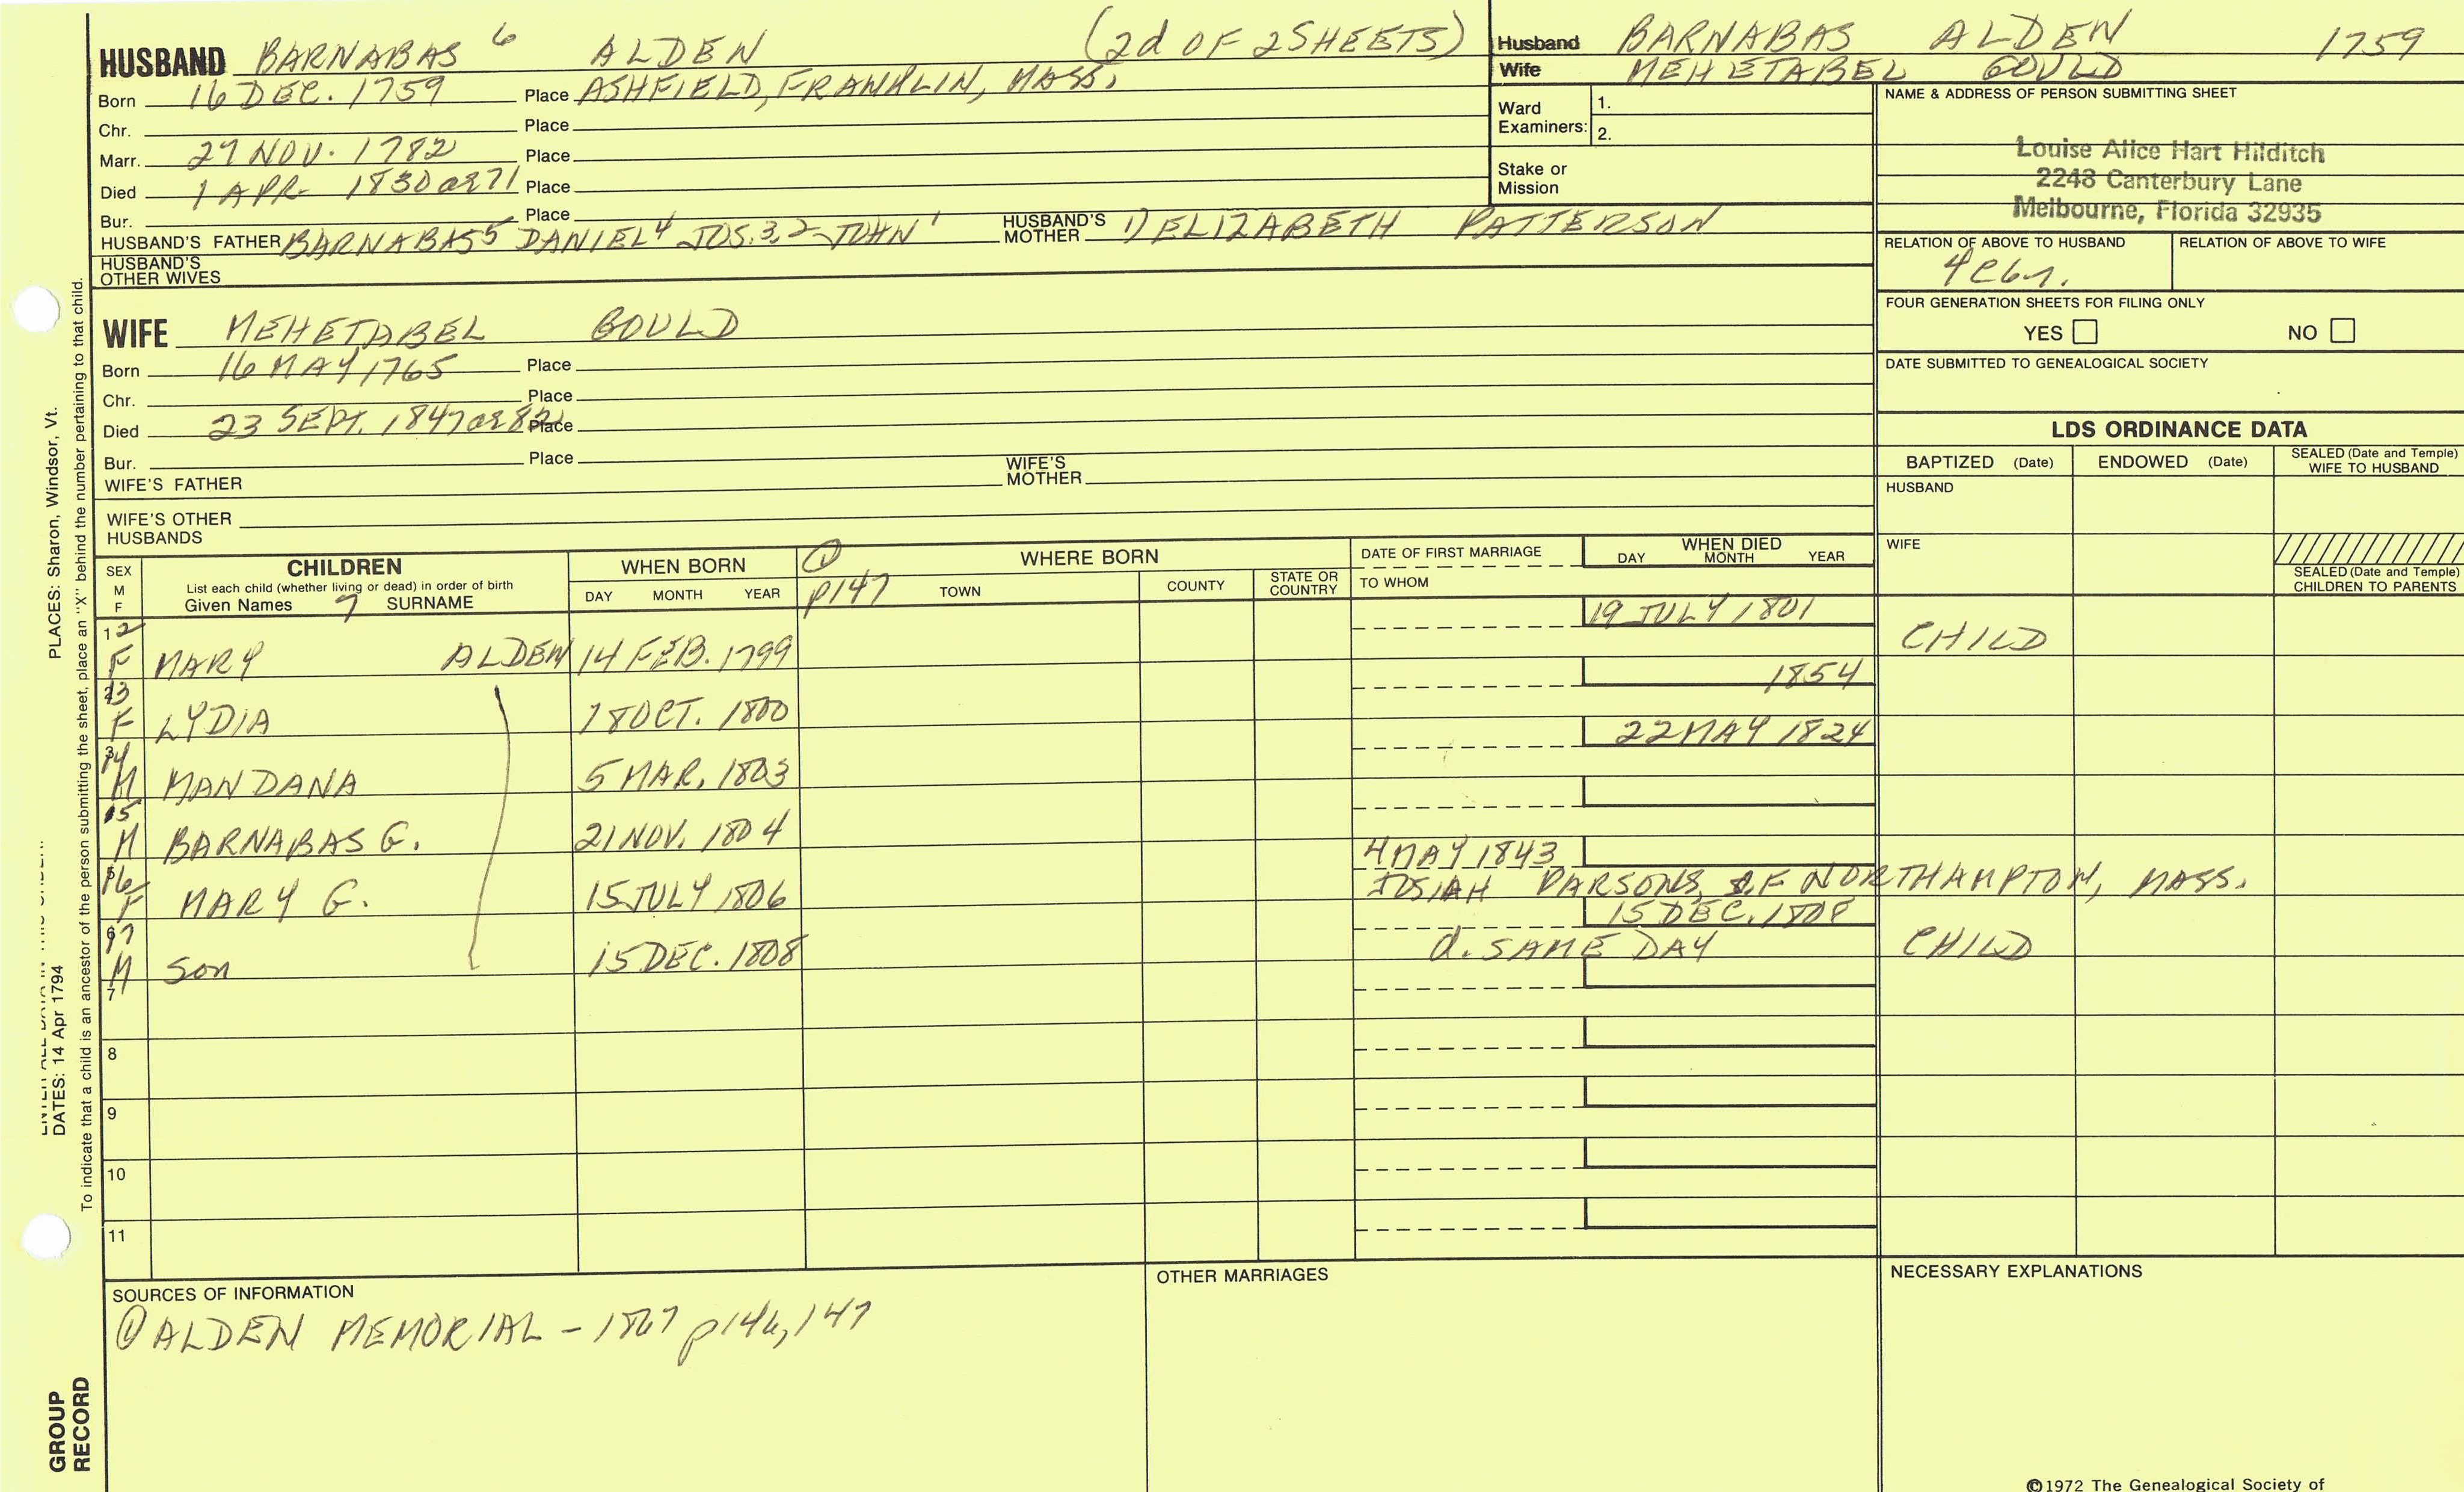 HUSBAND BARNABAS 6 ALDEN (2d OF 2 SHEETS)
Born 16 DEC. 1759 Place ASHFIELD, FRANKLIN, MASS.
Chr. Place
Marr. 27 NOV. 1782 Place
Died 1 APR 1830 OR 71 Place
Bur. Place
HUSBAND'S FATHER BARNABAS5 DANIEL4 JOS.3,2 JOHN1 HUSBAND'S MOTHER 1) ELIZABETH PATTERSON
HUSBAND'S OTHER WIVES
WIFE MEHETABEL GOULD
Born 16 MAY 1765 Place
Chr. Place
Died 23 SEPT. 1847 OR 82 Place
Bur. Place
WIFE'S FATHER WIFE'S MOTHER
WIFE'S OTHER HUSBANDS
Husband BARNABAS ALDEN 1759
Wife MEHETABEL GOULD
Ward Examiners: 1.
2.
Stake or Mission
NAME & ADDRESS OF PERSON SUBMITTING SHEET
Louise Alice Hart Hilditch
2248 Canterbury Lane
Melbourne, Florida 32935
RELATION OF ABOVE TO HUSBAND RELATION OF ABOVE TO WIFE
FOUR GENERATION SHEETS FOR FILING ONLY
YES NO
DATE SUBMITTED TO GENEALOGICAL SOCIETY
LDS ORDINANCE DATA
BAPTIZED (Date) ENDOWED (Date) SEALED (Date and Temple) WIFE TO HUSBAND
HUSBAND
WIFE
SEALED (Date and Temple) CHILDREN TO PARENTS
SEX M F
CHILDREN
List each child (whether living or dead) in order of birth
Given Names 7 SURNAME
WHEN BORN
DAY MONTH YEAR
① p147
WHERE BORN
TOWN COUNTY STATE OR COUNTRY
DATE OF FIRST MARRIAGE
TO WHOM
WHEN DIED
DAY MONTH YEAR
12 F MARY ALDEN 14 FEB. 1799 19 JULY 1801 CHILD
13 F LYDIA 18 OCT. 1800 1854
14 M MANDANA 5 MAR. 1803 22 MAY 1824
15 M BARNABAS G. 21 NOV. 1804
16 F MARY G. 15 JULY 1806 4 MAY 1843
JOSIAH PARSONS, OF NORTHAMPTON, MASS.
17 M Son 15 DEC. 1808 15 DEC. 1808
d. SAME DAY CHILD
7
8
9
10
11
SOURCES OF INFORMATION
① ALDEN MEMORIAL - 1867 p146, 147
OTHER MARRIAGES
NECESSARY EXPLANATIONS
©1972 The Genealogical Society of
PLACES: Sharon, Windsor, Vt.
DATES: 14 Apr 1794
To indicate that a child is an ancestor of the person submitting the sheet, place an "X" behind the number pertaining to that child.
GROUP
RECORD